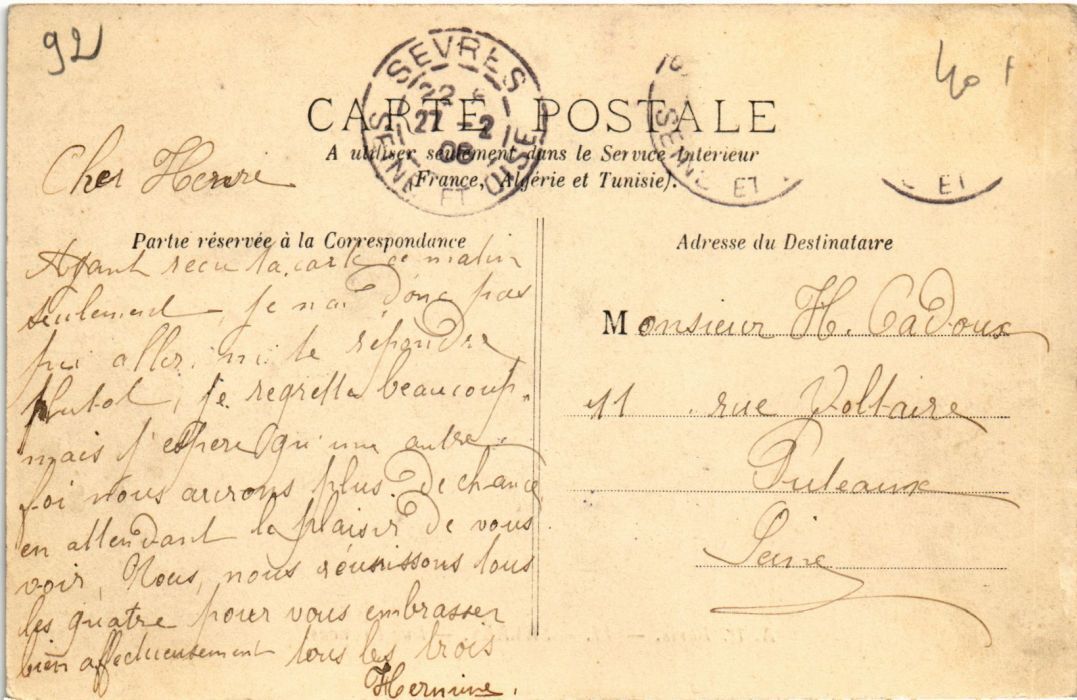 92
SEVRES
22
27 -2
06
SEINE ET OISE
SEINE ET
ET
CARTE POSTALE
A utiliser seulement dans le Service Intérieur
(France, Algérie et Tunisie).
Cher Henri
Partie réservée à la Correspondance
Adresse du Destinataire
Ayant recu ta carte ce matin
seulement, je n'ai donc pas
pu aller ni te repondre
plutot, je regrette beaucoup.
mais j'espere qu'une autre
foi nous aurons plus de chance
en attendant le plaisir de vous
voir, Nous, nous réunissons tous
les quatre pour vous embrasser
bien affectueusement tous les trois
Hermine.
Monsieur H. Cadoux
11 rue Voltaire
Puteaux
Seine